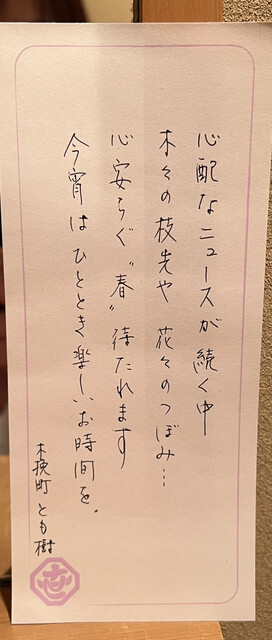 心配なニュースが続く中
木々の枝先や 花々のつぼみ…
心安らぐ〝春〟待たれます
今宵は ひととき楽しいお時間を。
木挽町 とも樹